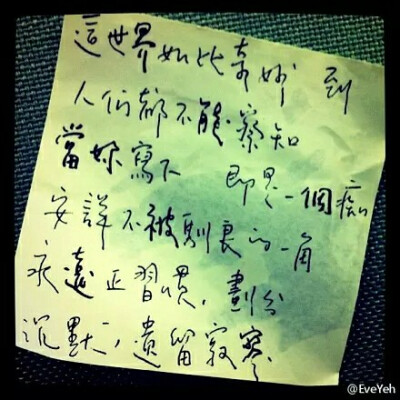 這世界如此奇妙 到
人们都不能察知
當妳寫下 即是一個痴
安詳不被馴良的一角
永遠正習慣，劃分
沉默，遺留寂寥
@EveYeh